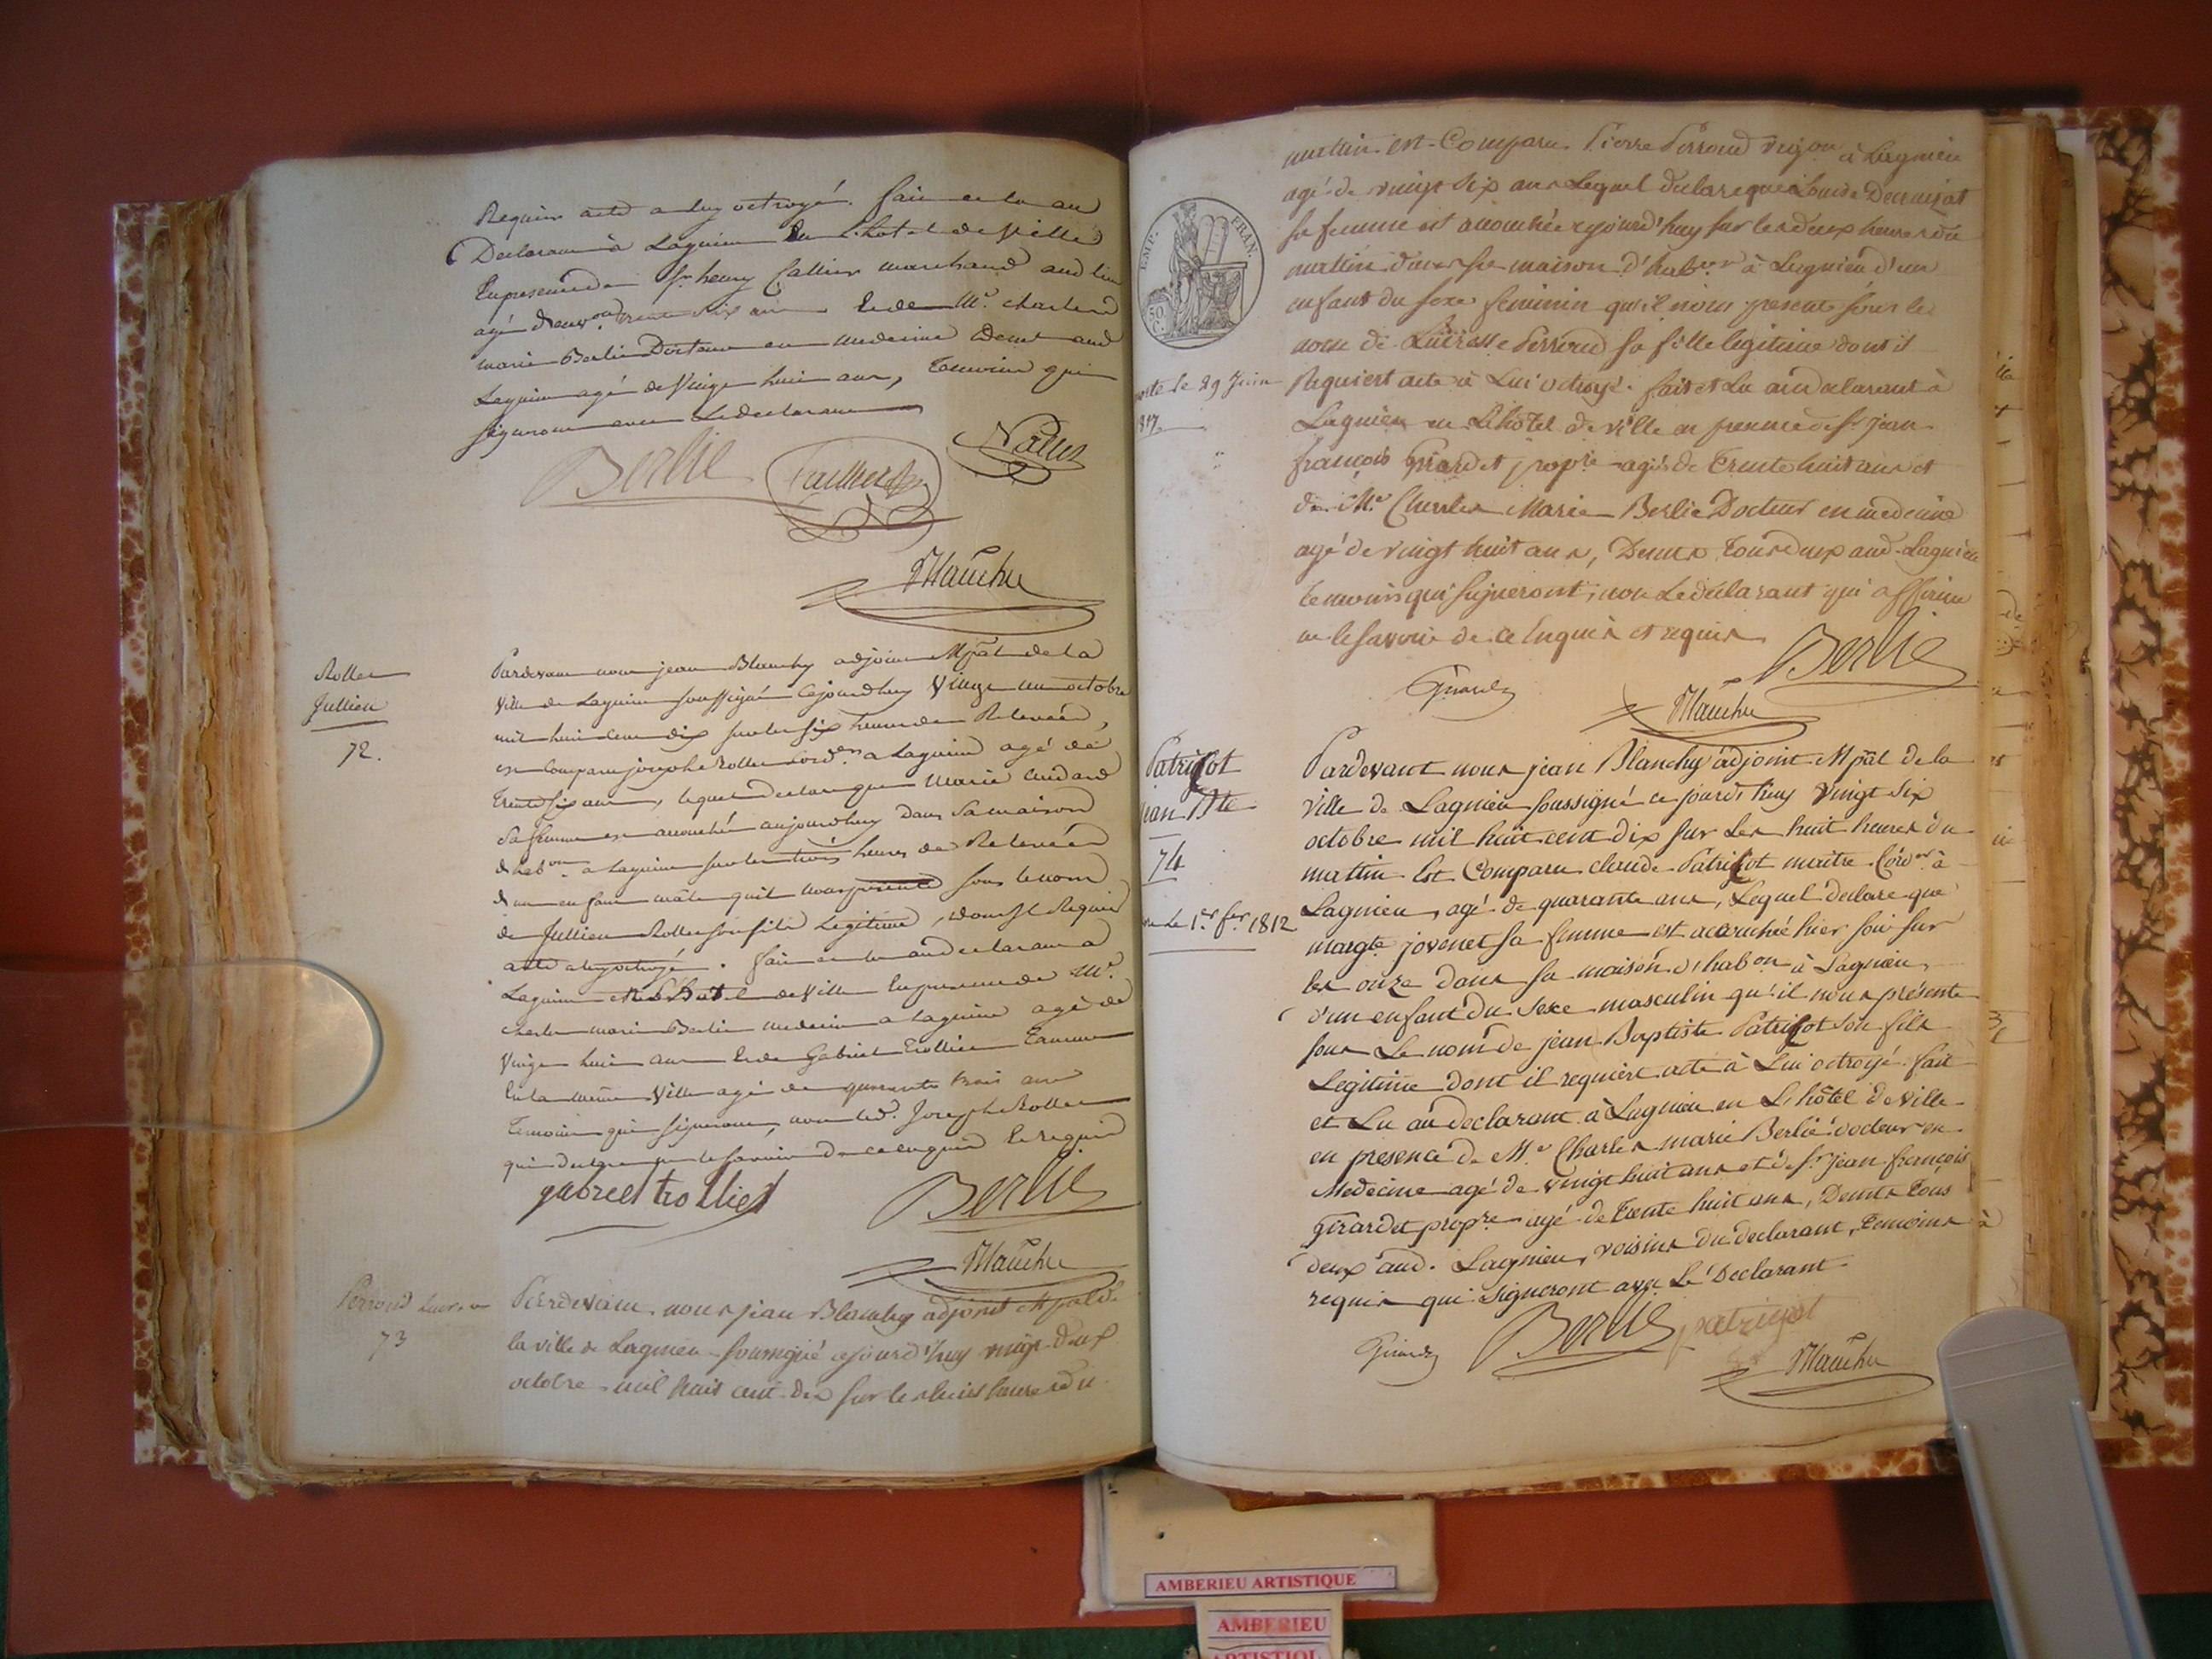 Requier acte a luy octroyé. fait et lu au
Declarant à Lagnieu En L'hotel de Ville
En presence de Sr. henry Callier marchand aud lieu
agé d'env.on trente six ans Et de Mr. charles
marie Berlié Docteur en medecine Demt aud
Lagnieu agé de Vingt huit ans, temoins qui
signeront avec Le declarant
Berlié
Mauchu
Rollet
Jullien
72.
Pardevant nous jean Blanchy adjoint Mpäl de la
Ville de Lagnieu soussigné Cejourdhuy Vingt un octobre
mil huit cent dix sur les six heures de Relevée,
est Comparu joseph Rollet a Lagnieu agé de
trente six ans, lequel declare que Marie
sa femme est accouchée aujourdhuy dans sa maison
d'hab.on a Lagnieu sur les trois heures de Relevée
d'un enfant mâle quil nous presente sous le nom
de Jullien Rollet son fils Legitime, dont Il Requier
acte a luy octroyé. fait et lu aud declarant a
Lagnieu En L'hotel de Ville En presence de Mr.
charles marie Berlié medecin a Lagnieu agé de
Vingt huit ans Et de Gabriel Trollier
En la même Ville agé de quarante trois ans
temoins qui signeront, non led. Joseph Rollet
qui declare ne le savoir de ce enquis Et requis
gabriel trolliet
Berlié
Mauchu
Perroud
73
Pardevant nous jean Blanchy adjoint Mpal de
la ville de Lagnieu soussigné cejourd'huy vingt deux
octobre mil huit cent dix sur les huit heures du
EMP. FRAN.
50 C.
mattin est Comparu Pierre Perroud vig.on à Lagnieu
agé de vingt six ans Lequel declare que Louise
sa femme est accouchée cejourd'huy sur les deux heures du
mattin dans sa maison d'hab.on à Lagnieu d'un
enfant du sexe feminin qu'il nous presente sous le
nom de Lucresse Perroud sa fille legitime dont il
Requiert acte à Lui octroyé. fait et Lu au declarant à
Lagnieu en L'hôtel de ville en presence de Sr jean
françois Girardet prop.re agé de trente huit ans et
de Mr Charles Marie Berlié Docteur en medecine
agé de vingt huit ans, Demts tous deux aud. Lagnieu
temoins qui signeront, non Le declarant qui affirme
ne le savoir de ce Enquis et requis
le 29 Juin
Berlié
Girardet
Mauchu
Patricot
jean Bte
74
le 1er fer. 1812
Pardevant nous jean Blanchy adjoint Mpäl de la
ville de Lagnieu soussigné ce jourd'huy vingt six
octobre mil huit cent dix sur les huit heures du
mattin Est Comparu claude Patricot maitre Cord.er à
Lagnieu, agé de quarante ans, Lequel declare que
margte jovenet sa femme est accouchée hier soir sur
les onze dans sa maison d'habon à Lagnieu,
d'un enfant du sexe masculin qu'il nous présente
sous Le nom de jean Baptiste Patricot son fils
Legitime dont il requiert acte à Lui octroyé. fait
et Lu au declarant à Lagnieu en L'hôtel de ville
en presence de Mr. Charles marie Berlié docteur en
Medecine agé de vingt huit ans et de Sr jean françois
Girardet prop.re agé de trente huit ans, Demts tous
deux aud. Lagnieu, voisins du declarant, temoins à
requis qui signeront avec Le Declarant
Girardet
Berlié
patricot
Mauchu
AMBERIEU ARTISTIQUE
AMBERIEU
ARTISTIQUE